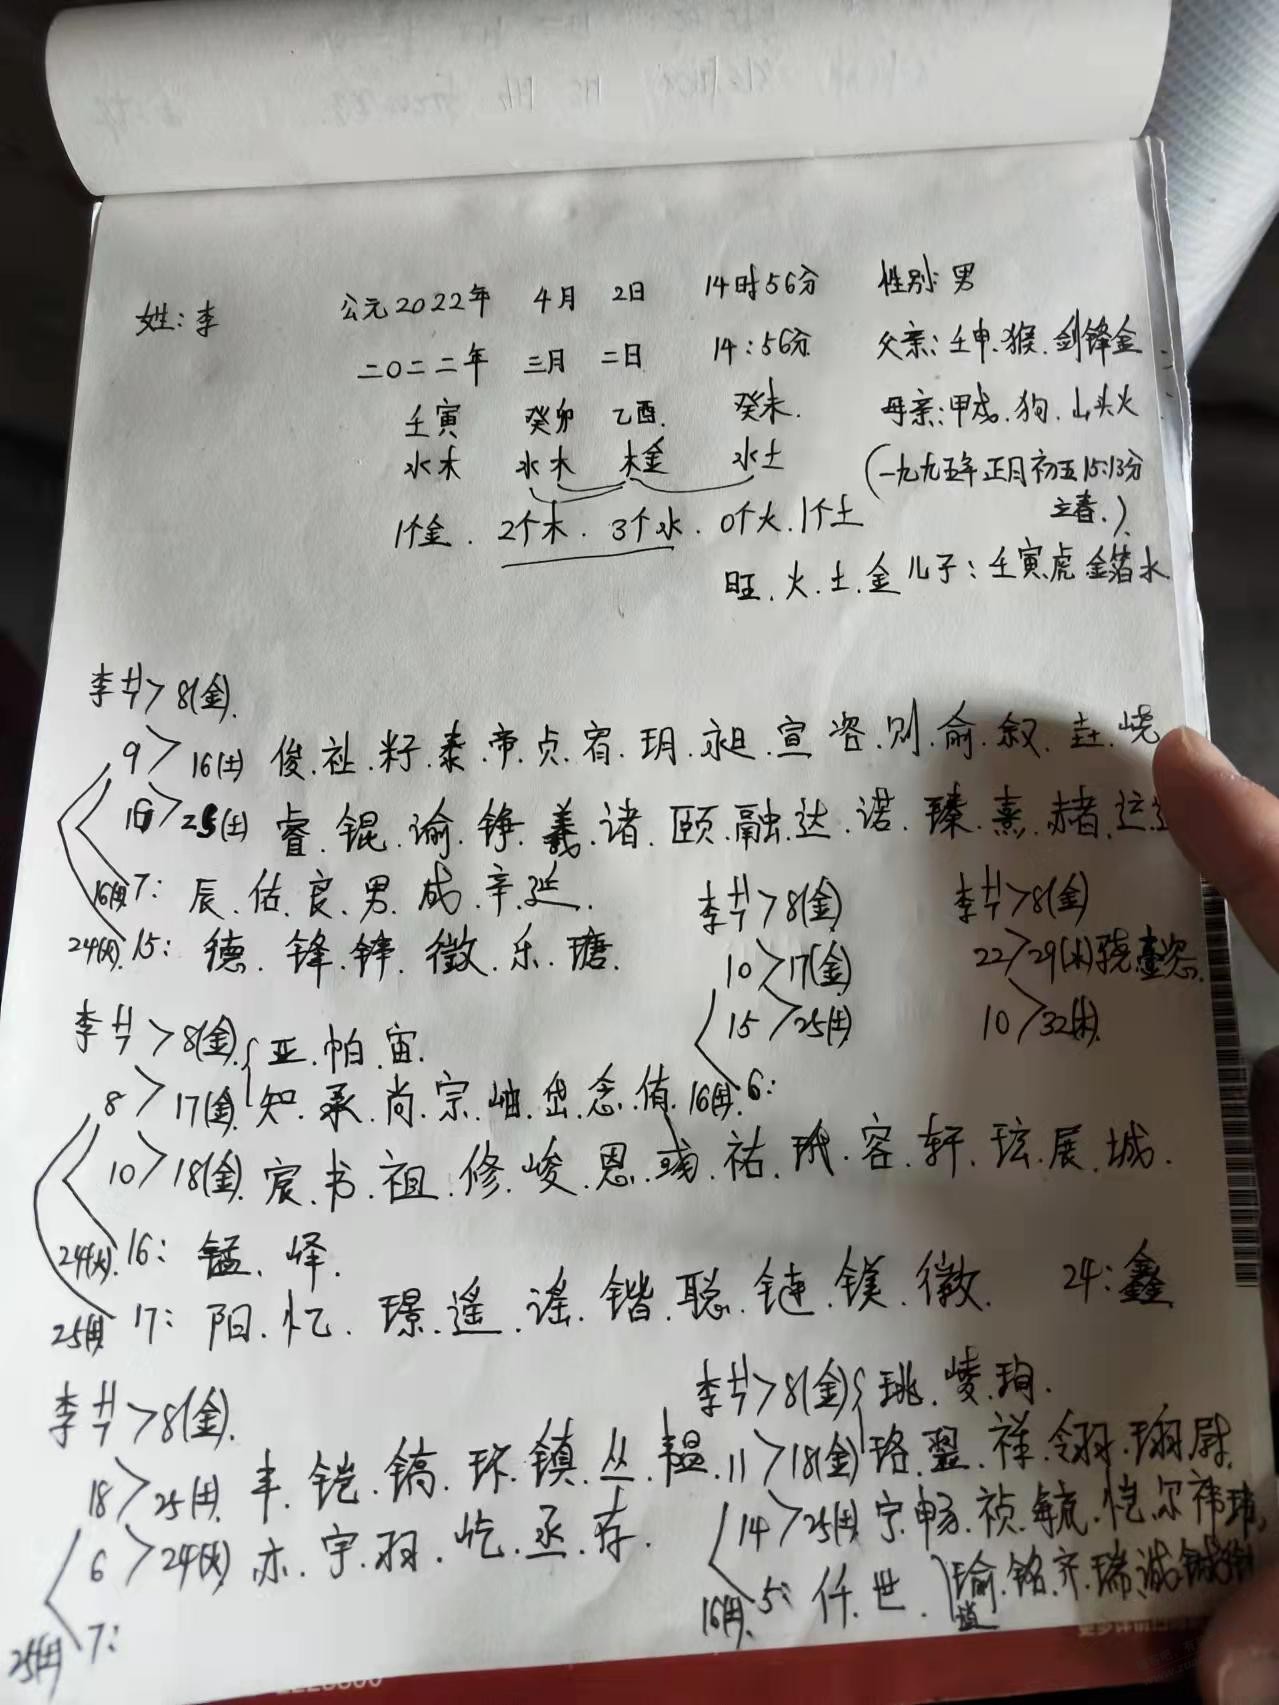 姓:李 公元2022年 4月 2日 14时56分 性别:男
二〇二二年 三月 二日 14:56分 父亲:壬申.猴.剑锋金
壬寅 癸卯 乙酉. 癸未. 母亲:甲戌.狗.山头火
水木 水木 木金 水土 (一九九五年正月初五15:13分
立春.)
1个金. 2个木. 3个水. 0个火.1个土
旺.火.土.金 儿子:壬寅虎 金箔水
李 廿>8(金).
9>16(土) 俊.祉.籽.泰.帝.贞.宥.玥.昶.宣.咨.则.俞.叙.垚.峣
16>25(土) 睿.锟.谕.铮.羲.诸.颐.融.达.诺.臻.熹.赭.运
16(土) 7: 辰.佑.良.男.成.辛.延.
24(火). 15: 德.锋.锌.徵.乐.瑭.
李 廿>8(金)
10>17(金)
15>25(土)
16(土). 6:
李 廿>8(金)
22>29(水)骁.懿.
10>32(木).
李 廿>8(金){亚.帕.宙.
8>17(金) 知.承.尚.宗.岫.岱.念.侑.
10>18(金) 宸.书.祖.修.峻.恩.彧.祐.珹.容.轩.玹.展.城.
24(火). 16: 锰.峄.
25(土) 17: 阳.忆.璟.遥.谣.锴.聪.链.镁.徽. 24:鑫
李 廿>8(金).
18>25(土) 丰.铠.镐.环.镇.丛.韫.
6>24(火) 亦.宇.羽.屹.丞.存.
25(土) 7:
李 廿>8(金){珧.崚.珣.
11>18(金) 珞.翌.祥.翎.翊.尉.
14>25(土) 宁.畅.祯.毓.恺.尔.祎.玮
瑜.铭.齐.瑞.诚.铖
16(土). 5: 仟.世.